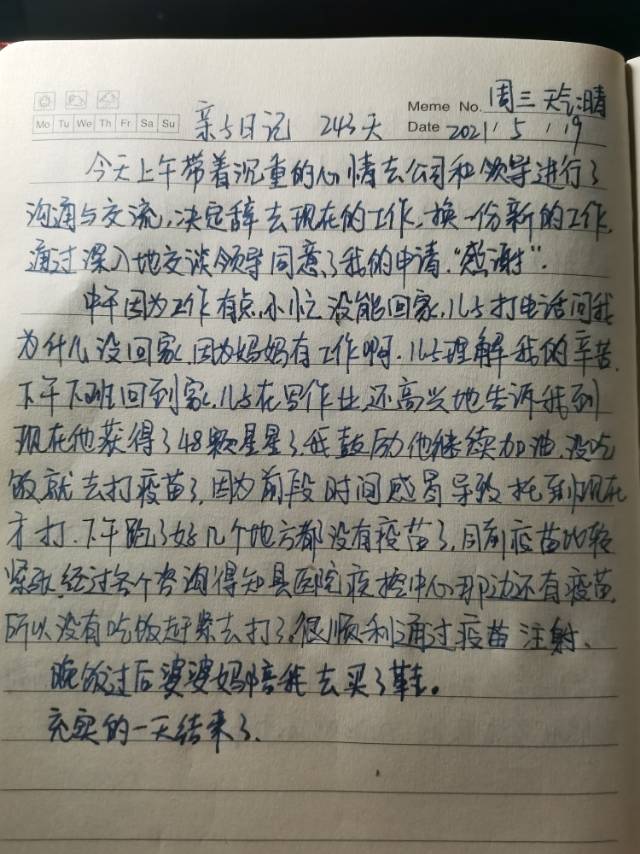 Meme No. 周三 天气:晴
Mo Tu We Th Fr Sa Su
亲子日记 243天
Date 2021 / 5 / 19
今天上午带着沉重的心情去公司和领导进行了
沟通与交流,决定辞去现在的工作,换一份新的工作,
通过深入地交谈领导同意了我的申请,“感谢”.
中午因为工作有点小忙没能回家,儿子打电话问我
为什么没回家,因为妈妈有工作啊.儿子理解我的辛苦.
下午下班回到家,儿子在写作业,还高兴地告诉我到
现在他获得了48颗星星了,我鼓励他继续加油,没吃
饭就去打疫苗了,因为前段时间感冒导致拖到现在
才打.下午跑了好几个地方都没有疫苗了,目前疫苗比较
紧张,经过各个咨询得知县医院疾控中心那边还有疫苗,
所以没有吃饭赶紧去打了.很顺利通过疫苗注射.
晚饭过后婆婆妈陪我去买了鞋。
充实的一天结束了.